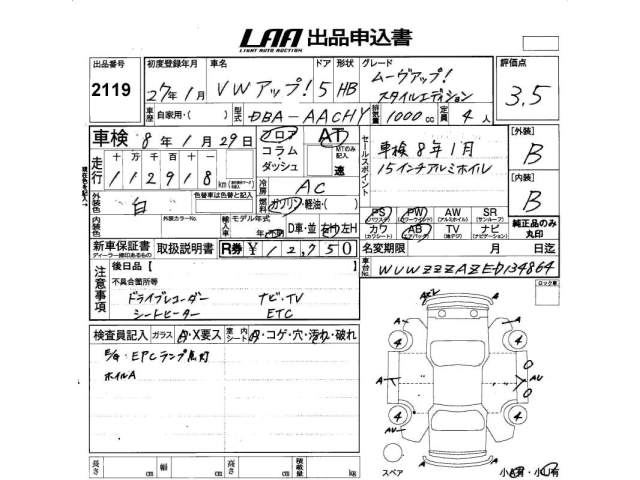 LAA 出品申込書
LIGHT AUTO AUCTION
出品番号 初度登録年月 車名 ドア 形状 グレード 評価点
2119 27年1月 VWアップ! 5 HB ムーヴアップ! スタイルエディション 3.5
車歴 自家用・( ) 型式 DBA-AACHY 排気量 1000cc 定員 4人
車検 8年1月29日 フロア AT
コラム・ダッシュ MTのみ記入 速
セールスポイント 車検8年1月
15インチアルミホイル
[外装] B
[内装] B
走行 十万 千 百 十
112918km
冷房 AC
燃料 ガソリン・軽油・( )
外装色 白 色替車は色替と記入
内装色 外装カラーNo. 輸入車 モデル年式 D車・並 右H 左H
PS パワステ PW パワーウインド AW (アルミホイル) SR (サンルーフ) 純正品のみ丸印
カワ (カワシート) AB エアバック TV (地デジ) ナビ (ナビゲーション)
新車保証書 取扱説明書 R券 ¥12,750
ディーラー捺印あるもの
名変期限 月 日迄
車台No. WVWZZZAAZED134864
注意事項 後日品【
不具合箇所等
ドライブレコーダー ナビ・TV
シートヒーター ETC
ロック車
検査員記入 ガラス A・X要ス 室内シート A・コゲ・穴・汚れ・破れ
E/G・EPCランプ点灯
ホイルA
A A A A A AU AU
4 4 4 4
スペア
小A有・小U有
長さ cm 幅 cm 高さ cm 積載量 kg